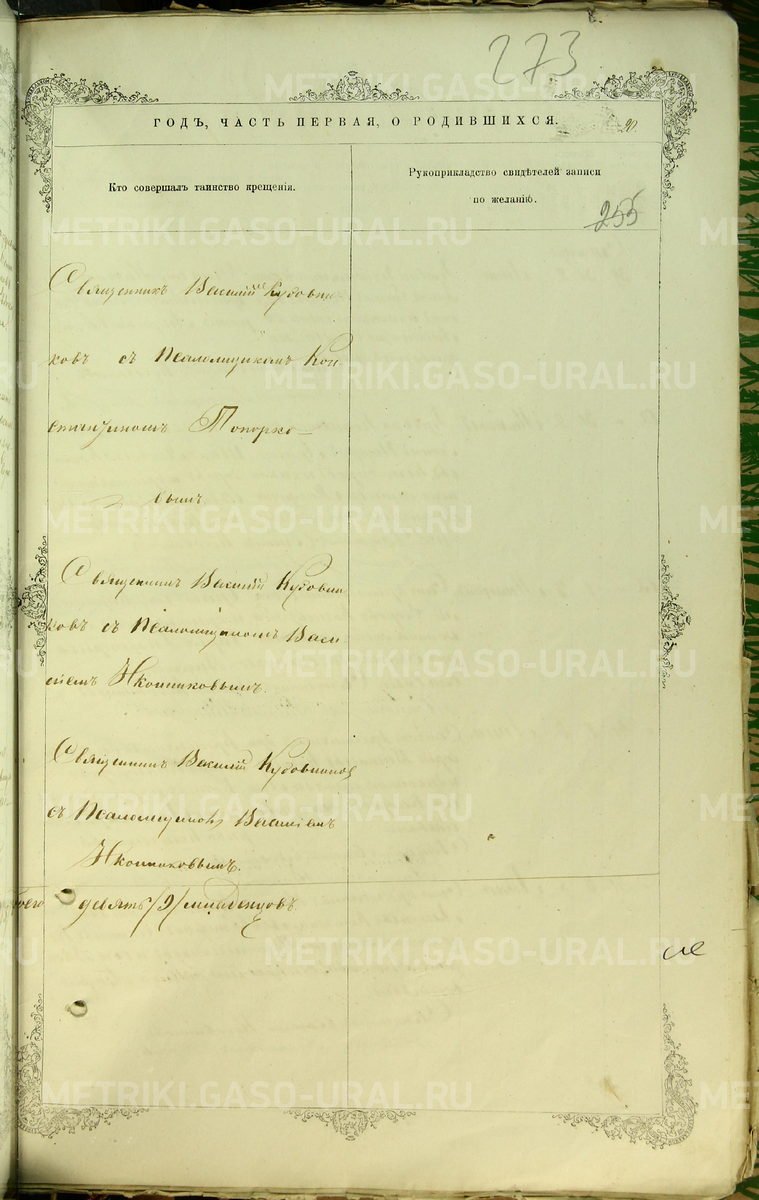 273
ГОДЪ, ЧАСТЬ ПЕРВАЯ, О РОДИВШИХСЯ.
Кто совершалъ таинство крещенія.
Рукоприкладство свидѣтелей записи
по желанію.
255
Священникъ Василій Кудовни-
ковъ съ Псаломщикомъ Кон-
стантиномъ Топорко-
вымъ.
Священникъ Василій Кудовни-
ковъ съ Псаломщикомъ Васи-
ліемъ Иконниковымъ.
Священникъ Василій Кудовниковъ
съ Псаломщикомъ Василіемъ
Иконниковымъ.
девять /9/ младенцовъ
METRIKI.GASO-URAL.RU